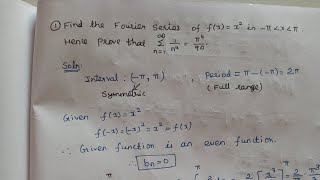 ① Find the Fourier Series of f(x) = x² in -π < x < π.
Hence Prove that ∑_{n=1}^{∞} 1/n⁴ = π⁴/90
Soln:
Interval : (-π, π) , Period = π - (-π) = 2π
Symmetric (Full range)
Given f(x) = x²
f(-x) = (-x)² = x² = f(x)
∴ Given function is an even function.
∴ bn = 0